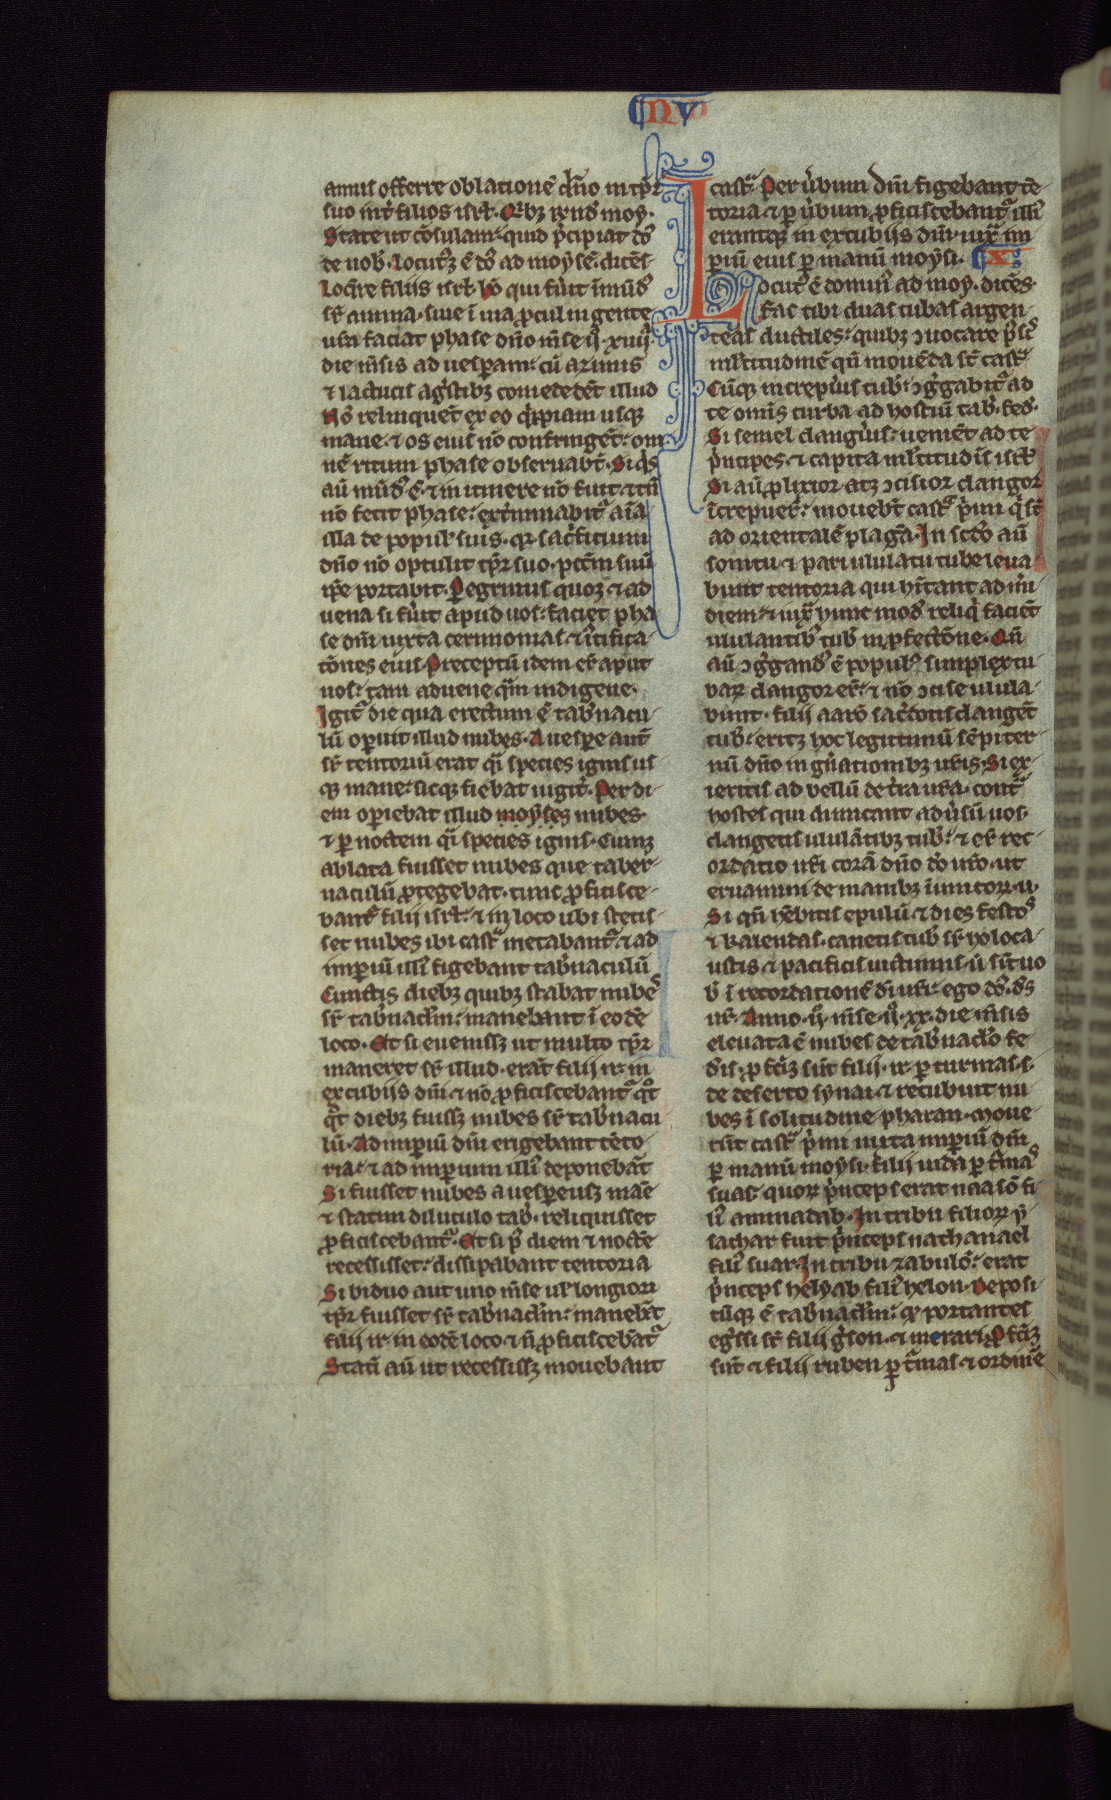 NV
amus offerre oblationē dn̄o in tp̄r
suo int̾ filios isrl̾. Qibz r̄ndit moy.
State ut cōsulam: quid p̄cipiat dn̄s
de uob̾. Locutz ē dn̄s ad moysē. dicēs
Loq̄re filiis isrl̾. hō qui fu̾it ī mūd̾
sr̄ anima. siue ī uia procul in gente
ur̄a faciat phase dn̄o mēse ij̊. xiiij.
die mēsis ad uesp̄am: cū azimis
⁊ lactucis agrestibz comedēt illud
Nō relinquēt ex eo q̄ppiam usqȝ
mane. ⁊ os eius nō confringēt: om
nē ritum phase obseruabt̄. Si q̄s
aū mūd̾ ē. ⁊ in itinere nō fuit. ⁊ tn̄
nō fecit phase: ext̾minabit̾ aīa
illa de populis suis. qr̄ sac̾ficium
dn̄o nō optulit tp̄r suo. pcc̄m suū
ip̄e portabit. Peregrinus quoqȝ ⁊ ad
uena si fu̾it apud uos: faciet pha
se dn̄i iuxta cerimonias ⁊ iustifica
tōnes eius. Preceptū idem er̄ aput
uos: tam aduene q̄m indigene.
Igit̾ die qua erectum ē tab̾nacu
lū op̄uit illud nubes. A uesp̄e autē
sr̄ tentoriū erat q̄i species ignis us
qȝ mane. sicqȝ fiebat iugit̾. Per di
em op̄iebat illud moyses nubes
⁊ p̄ noctem q̄i species ignis. Cumqȝ
ablata fuisset nubes que taber
naculū protegebat. tunc proficisce
bant̾ filii isrl̾. ⁊ in loco ubi stetis
set nubes ibi cast̾ metabant̾. ⁊ ad
imp̄iū illi̾ figebant tab̾naculū
Cunctis diebz quibz stabat nubes
sr̄ tab̾nacl̄m: manebant ī eodē
loco. Et si eueniss̾ ut multo tp̄r
maneret sr̄ illud. erāt filii ir̄. in
excubiis dn̄i. ⁊ nō proficiscebant̾ q̊t
q̊t diebz fuissȝ nubes sr̄ tab̾nacu
lū. Ad imp̄iū dn̄i erigebant tēto
ria: ⁊ ad imp̄ium illi̾ deponebāt
Si fuisset nubes a uesp̄e usqȝ mane
⁊ statim diluculo tab̾. reliquisset
proficiscebant̾. Et si p̾ diem ⁊ noctē
recessisset: dissipabant tentoria
Si biduo aut uno mēse ul̄ longiori
tp̄r fuisset sr̄ tab̾nacl̄m: manebāt
filii ir̄. in eodē loco. ⁊ n̄ proficiscebāt̾
Statī aū ut recessissȝ mouebant
cast̾. Per u̾bum dn̄i figebant tē
toria ⁊ p̄ u̾bum proficiscebant̾. illi̾
erantqȝ in excubiis dn̄i. iux̾ im
p̄iū eius p̄ manū moysi. X
Locut̾ ē domin̾ ad moy. dicēs.
Fac tibi duas tubas argen
teas ductiles: quibz ɔuocare p̾s̾
ml̄titudinē qn̄ mouēda st̄ cast̾.
Cūqȝ increpu̾is tub̾: ɔg̾gabit̾ ad
te omīs turba ad hostiū tab̾. fed̾.
Si semel clang̾is: ueniēt ad te
p̾ncipes. ⁊ capita ml̄titudīs isrl̾
Si aū prolixior atqȝ ɔcisior clangor
īcrepuer̾: mouebt̄ cast̾ p̾mi q̾ st̄
ad orientalē plagā. In scdō aū
sonitu. ⁊ pari ululatu tube leua
bunt tentoria qui h̾itant ad m̾i
diem: ⁊ iux̾ hunc mod̾ reliq̾ faciēt
ululantib̾ tub̾ in profectōne. Qn̄
aū ɔg̾gand̾ ē popul̾. simplex tu
barꝝ clangor er̄: ⁊ nō ɔcise ulula
bunt. Filii aarō sac̾dotis clangēt
tub̾: eritqȝ hoc legitimū sēpiter
nū dn̄o in gn̄ationibz ur̄is. Si ex
ieritis ad bellū de t̾ra ur̄a. cont̾
hostes qui dimicant adu̾sū uos.
clangetis ululātibz tub̾: ⁊ er̄ rec
ordatio ur̄i corā dn̄o dō ur̄o. ut
eruamini de manibz inimicorꝝ. u.
Si qn̄ h̾ebitis epulū. ⁊ dies festos
⁊ kalendas. canetis tub̾ sr̄ holoca
ustis ⁊ pacificis uictimis. ut sint uo
b̾ ī recordationē di̾ ur̄i: ego dn̄s. ds̄
ur̄. Anno. ij̊. mēse. ij̊. xx. die mēsis
eleuata ē nubes de tab̾naclo fe
d̾is. profc̄iqȝ sūt filii. ir̄. p̄ turmas. s.
de deserto synai. ⁊ recubuit nu
bes ī solitudine pharan. Moue
rūt cast̾ p̾mi iuxta imp̄iū dn̄i
p̄ manū moysi. filii iuda p̄ t̾mas
suas: quorꝝ p̾nceps erat naasō fi
li̾ aminadab. In tribu filiorꝝ y
sachar fuit p̾nceps nathanael
fili̾ suar. In tribu zabulō: erat
p̾nceps helyab fili̾ helon. Deposi
tūqȝ ē tab̾nacl̄m: qd̾ portantes
eg̾ssi st̄ filii g̾son. ⁊ merari. Profc̄iqȝ
sūt ⁊ filii ruben p̄ t̾mas ⁊ ordinē